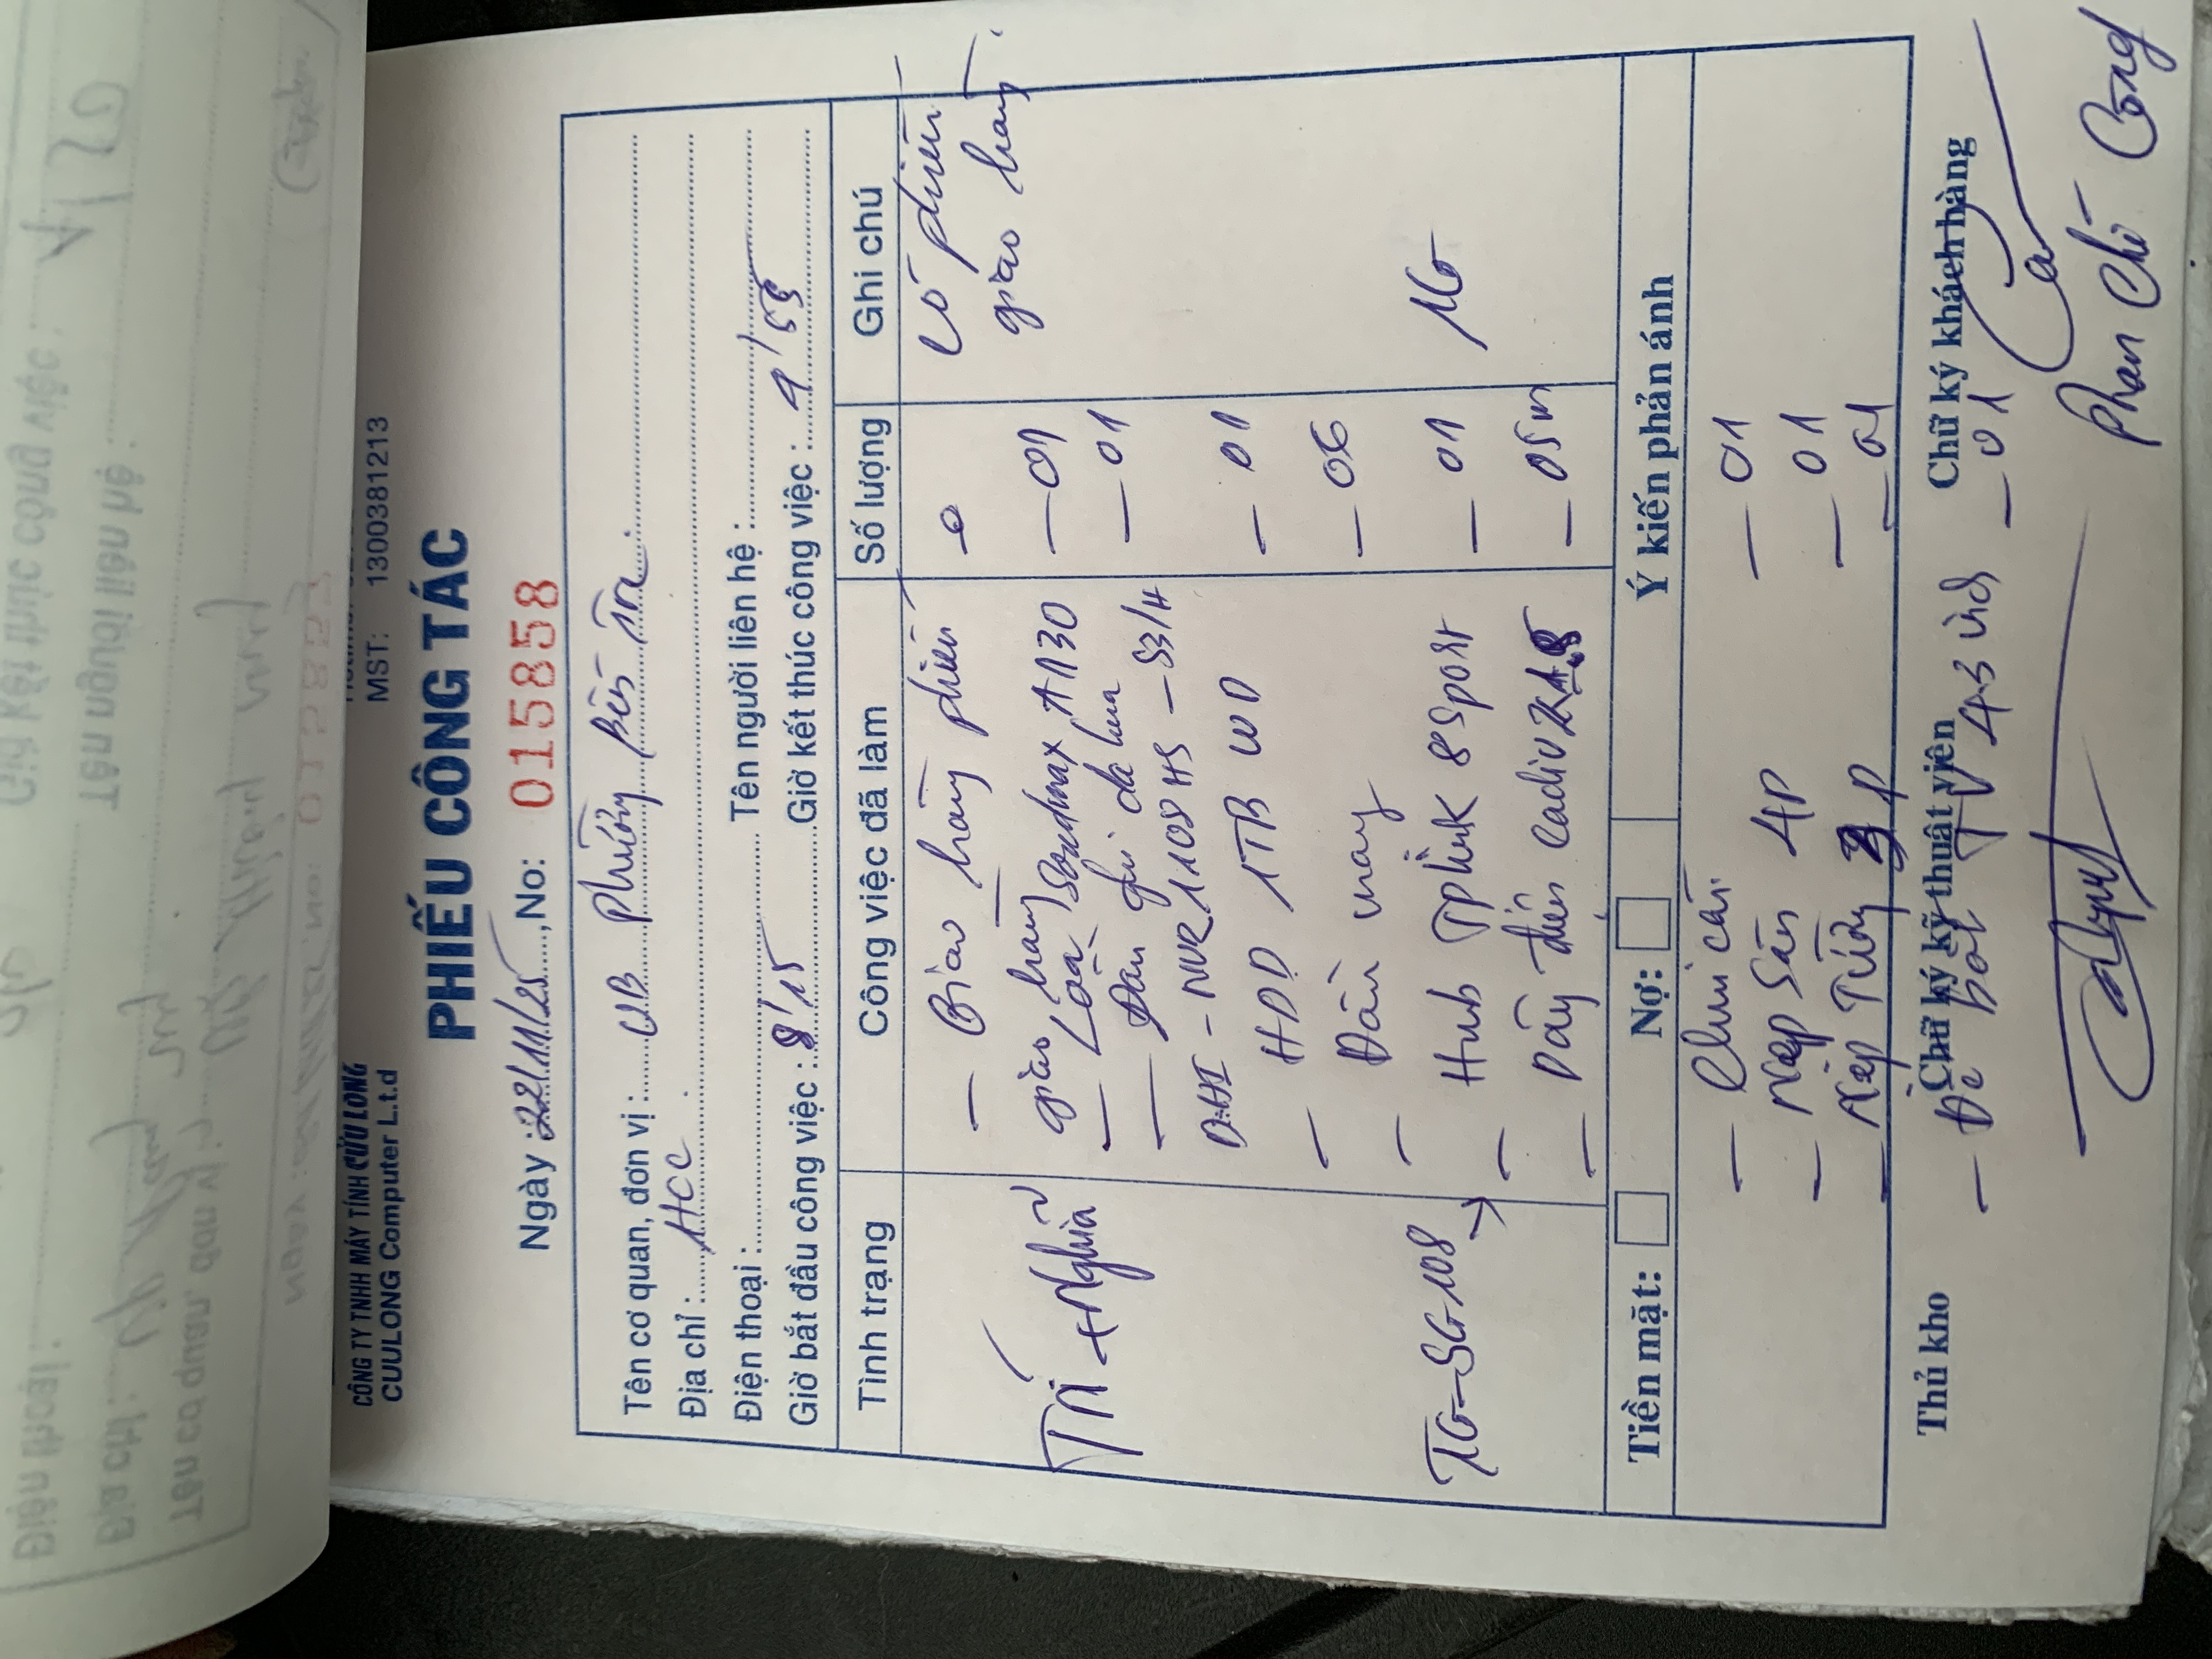 CÔNG TY TNHH MÁY TÍNH CỬU LONG
CUULONG Computer L.t.d
MST: 1300381213
PHIẾU CÔNG TÁC
Ngày: 22/11/25, No: 015858
Tên cơ quan, đơn vị: UB Phường Bến Tre.
Địa chỉ: HCC.
Điện thoại: Tên người liên hệ:
Giờ bắt đầu công việc: 8'15 Giờ kết thúc công việc: 9'55
Tình trạng Công việc đã làm Số lượng Ghi chú
- Giao hàng phiếu Có phiếu
giao hàng giao hàng.
Trí + Nghĩa - Loa Soundmax A1130 - 01
- Đầu ghi da hua - 01
DHI-NVR1108HS-S3/H
- HDD 1TB WD - 01
- Đầu mạng - 06
TG-SG108 → - Hub TPlink 8port - 01 1G
- Dây điện Cadivi - 05m
Tiền mặt: Nợ: Ý kiến phản ánh
- Chui cắm - 01
- Nẹp Sàn 4P - 01
- Nẹp Tường P - 01
Thủ kho Chữ ký kỹ thuật viên Chữ ký khách hàng
- 43 - 01
Phan Chí Công